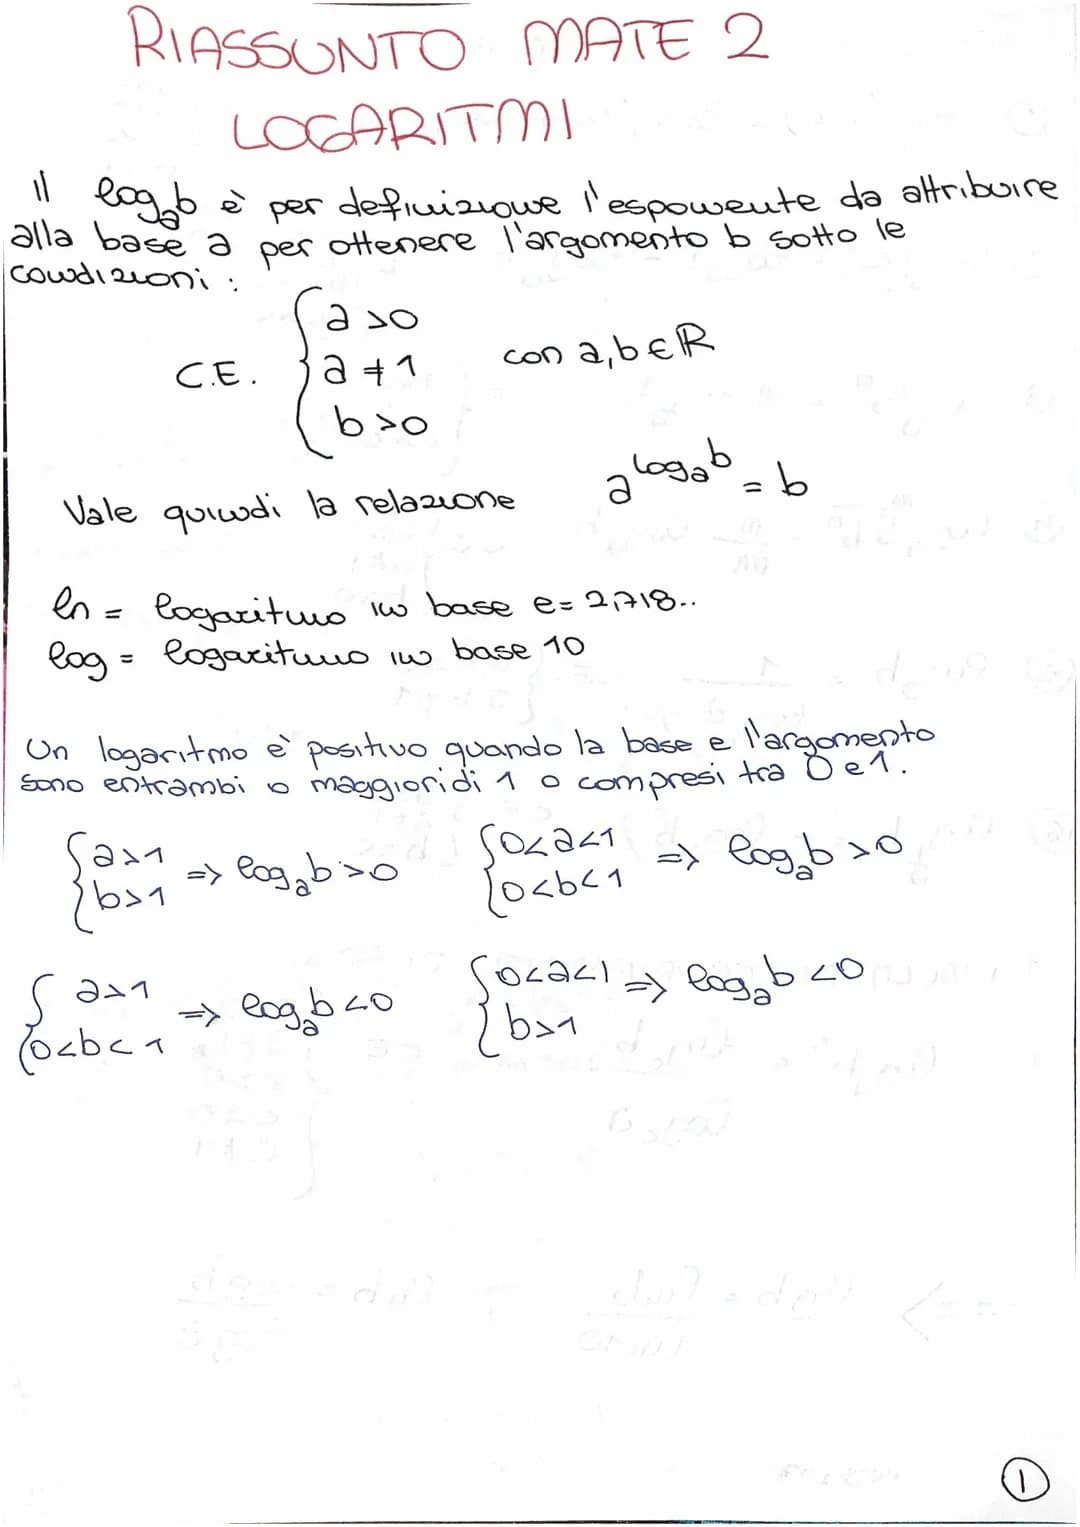 RIASSUNTO MATE 2
LOGARITMI
il logₐb è per definizione l'esponente da attribuire
alla base a per ottenere l'argomento b sotto le
condizioni :
a>0
C.E. { a≠1 con a,b∈ℝ
b>0
Vale quindi la relazione a^(logₐb) = b
ln = logaritmo in base e= 2,718..
log = logaritmo in base 10
Un logaritmo è positivo quando la base e l'argomento
sono entrambi o maggiori di 1 o compresi tra 0 e 1.
{ a>1 { 0<a<1
b>1 => logₐb>0 0<b<1 => logₐb>0
{ a>1 { 0<a<1
0<b<1 => logₐb<0 b>1 => logₐb<0
1